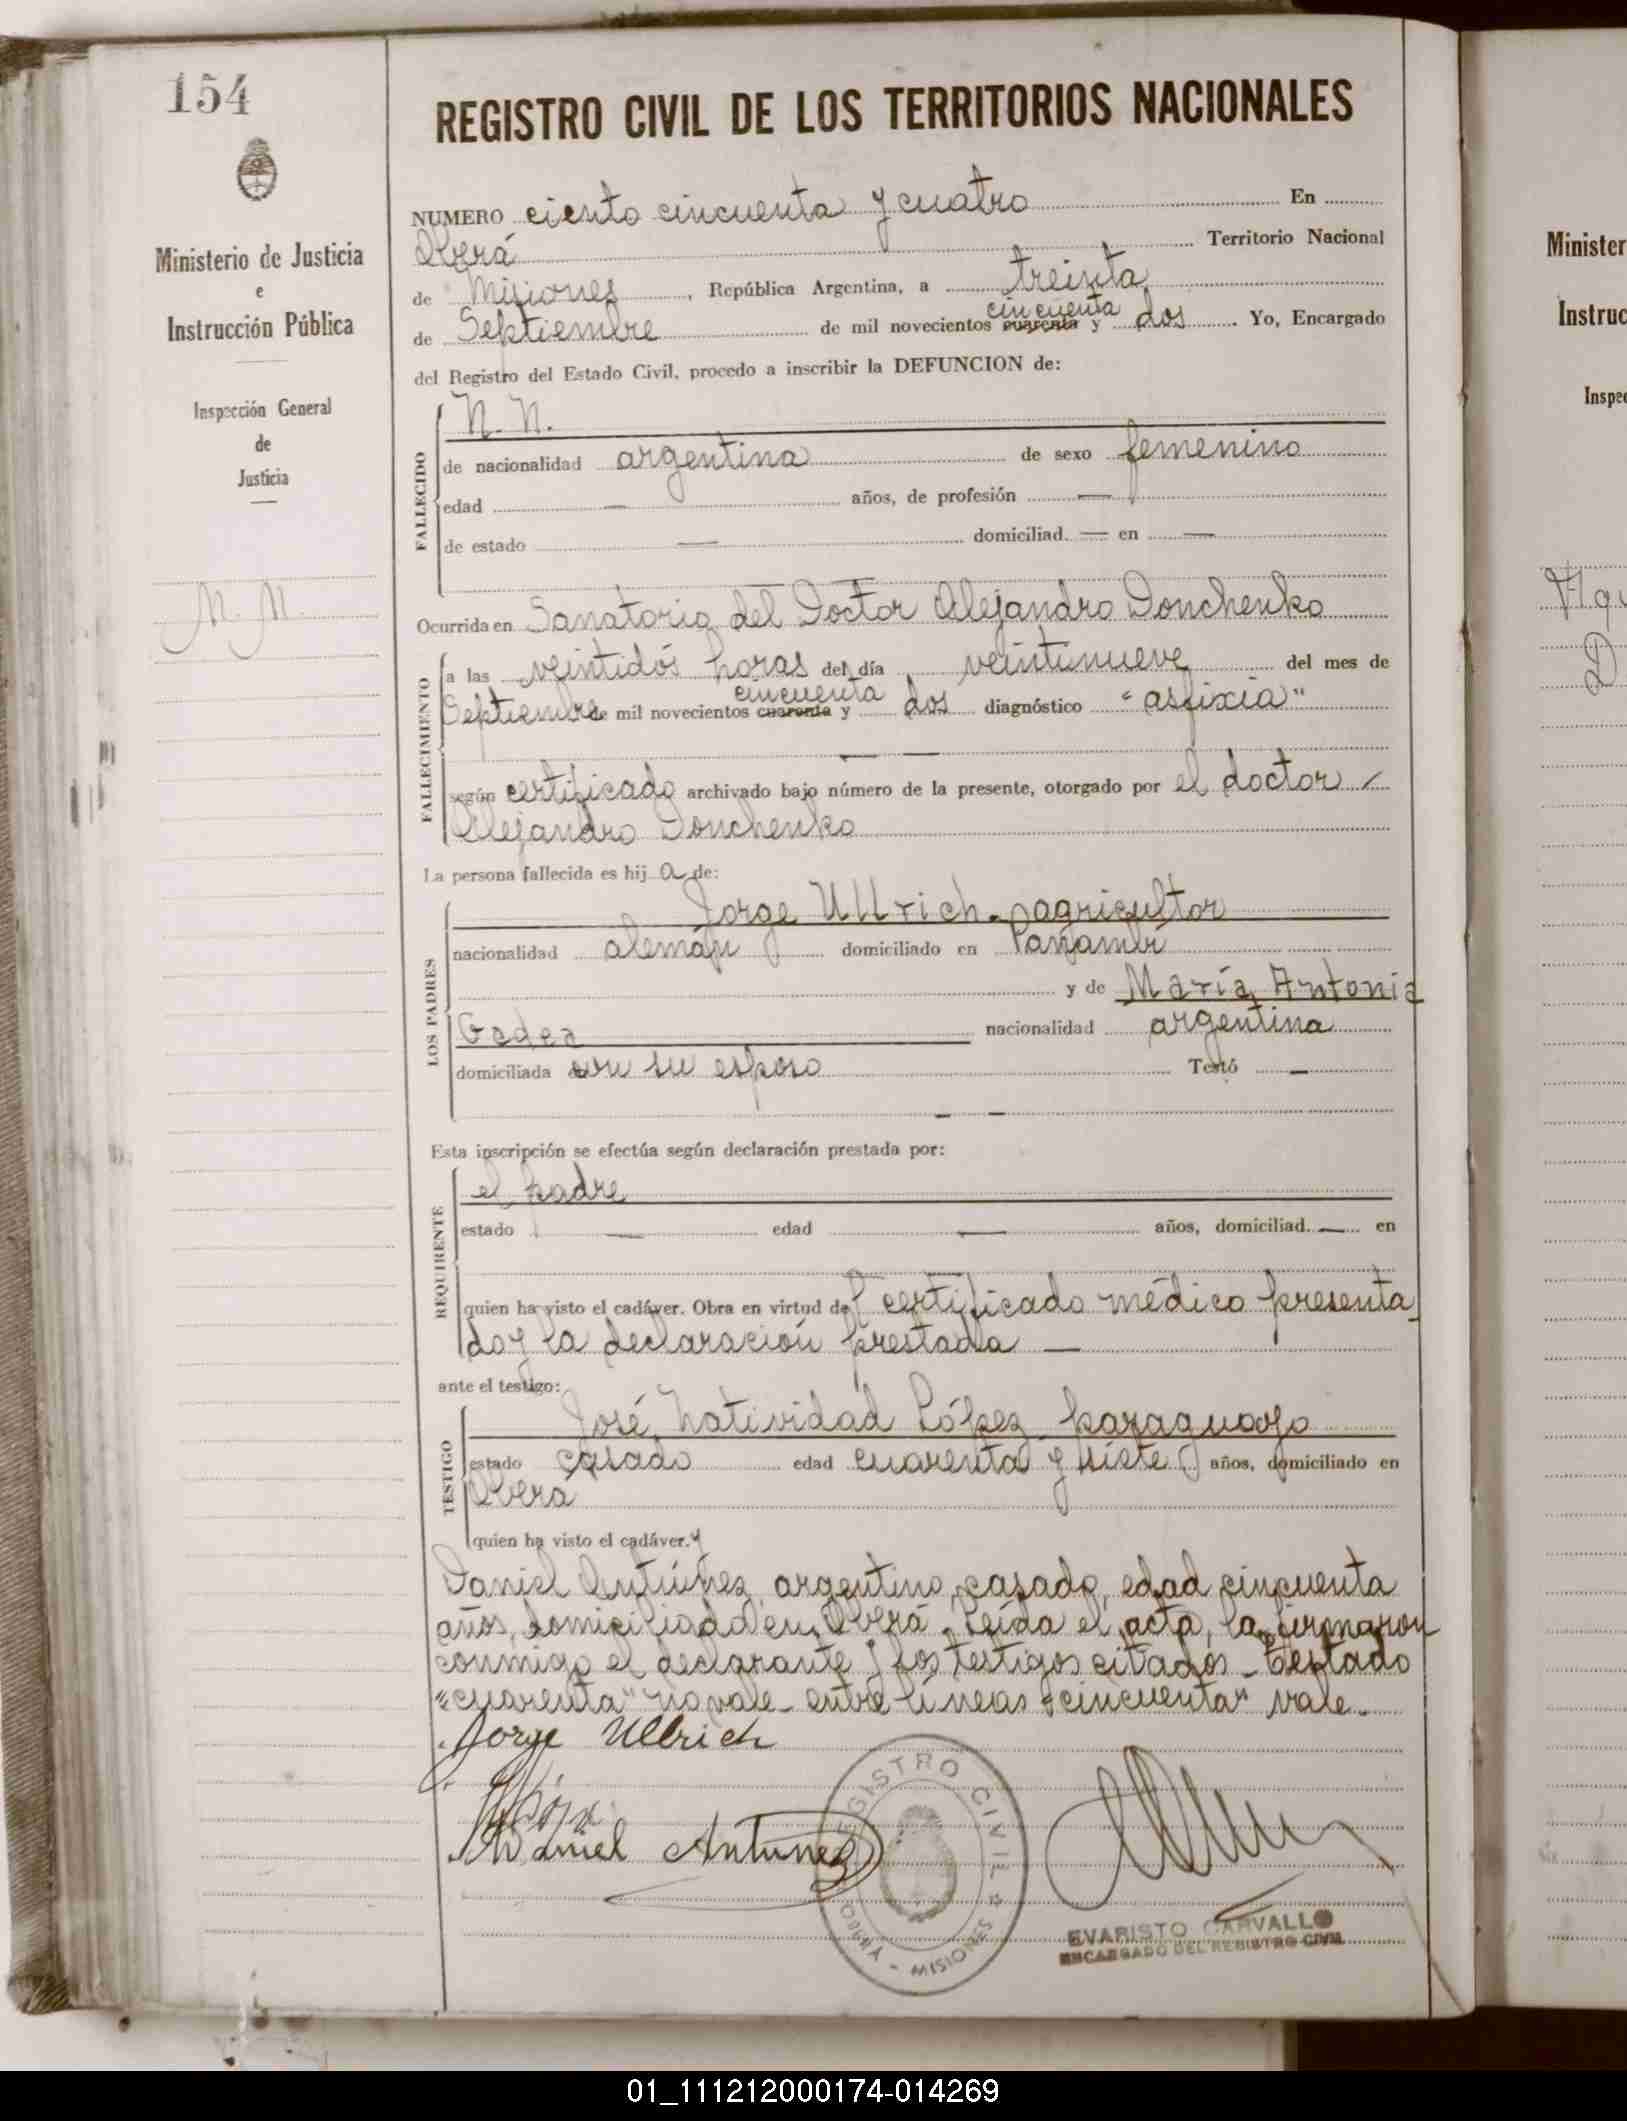 154
REGISTRO CIVIL DE LOS TERRITORIOS NACIONALES
Ministerio de Justicia
e
Instrucción Pública
Inspección General
de
Justicia
N. N.
NUMERO ciento cincuenta y cuatro En
Oberá Territorio Nacional
de Misiones, República Argentina, a treinta
cincuenta
de Septiembre de mil novecientos cuarenta y dos. Yo, Encargado
del Registro del Estado Civil, procedo a inscribir la DEFUNCION de:
FALLECIDO
N. N.
de nacionalidad argentina de sexo femenino
edad — años, de profesión —
de estado — domiciliad. — en —
Ocurrida en Sanatorio del Doctor Alejandro Donchenko
FALLECIMIENTO
a las veintidós horas del día veintinueve del mes de
cincuenta
Septiembre de mil novecientos cuarenta y dos diagnóstico "asfixia"
— —
según certificado archivado bajo número de la presente, otorgado por el doctor
Alejandro Donchenko
La persona fallecida es hij a de:
LOS PADRES
Jorge Ullrich - agricultor
nacionalidad alemán domiciliado en Panambí
y de María Antonia
Gadea nacionalidad argentina
domiciliada con su esposo Testó —
— —
Esta inscripción se efectúa según declaración prestada por:
REQUIRENTE
el padre
estado — edad — años, domiciliad. — en
quien ha visto el cadáver. Obra en virtud del certificado médico presenta
do y la declaración prestada —
ante el testigo:
TESTIGO
José Natividad López - paraguayo
estado casado edad cuarenta y siete años, domiciliado en
Oberá
quien ha visto el cadáver. y
Daniel Antúnez, argentino, casado, edad cincuenta
años, domiciliado en Oberá. Leída el acta, la firmaron
conmigo el declarante y los testigos citados - Testado
"cuarenta" no vale - entre líneas "cincuenta" vale.
Jorge Ullrich
Daniel Antunez
REGISTRO CIVIL
OBERA - MISIONES
EVARISTO CARVALLO
ENCARGADO DEL REGISTRO CIVIL
Minister
Instruc
Inspec
01_111212000174-014269